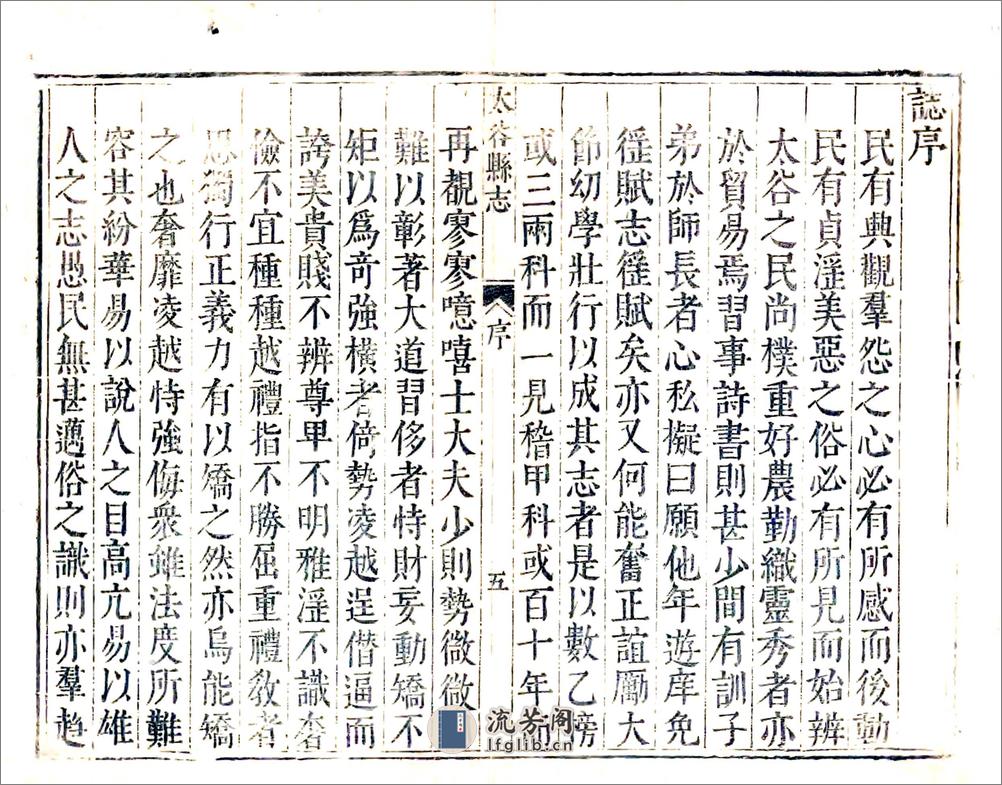 誌序
民有興觀羣怨之心必有所感而後動
民有貞淫美惡之俗必有所見而始辨
太谷之民尚樸重好農勤織靈秀者亦
於貿易焉習事詩書則甚少間有訓子
弟於師長者心私擬曰願他年遊庠免
徭賦志徭賦矣亦又何能奮正誼勵大
節幼學壯行以成其志者是以數乙榜
或三兩科而一見稽甲科或百十年而
太谷縣志
序
五
再覩寥寥噫嘻士大夫少則勢微微
難以彰著大道習侈者恃財妄動矯不
矩以爲奇強橫者倚勢凌越逞僭逼而
誇美貴賤不辨尊卑不明雅淫不識奢
儉不宜種種越禮指不勝屈重禮敎者
思獨行正義力有以矯之然亦烏能矯
之也奢靡凌越恃強侮衆雖法度所難
容其紛華易以說人之目高亢易以雄
人之志愚民無甚邁俗之識則亦羣趨
流芳阁
lfglib.cn